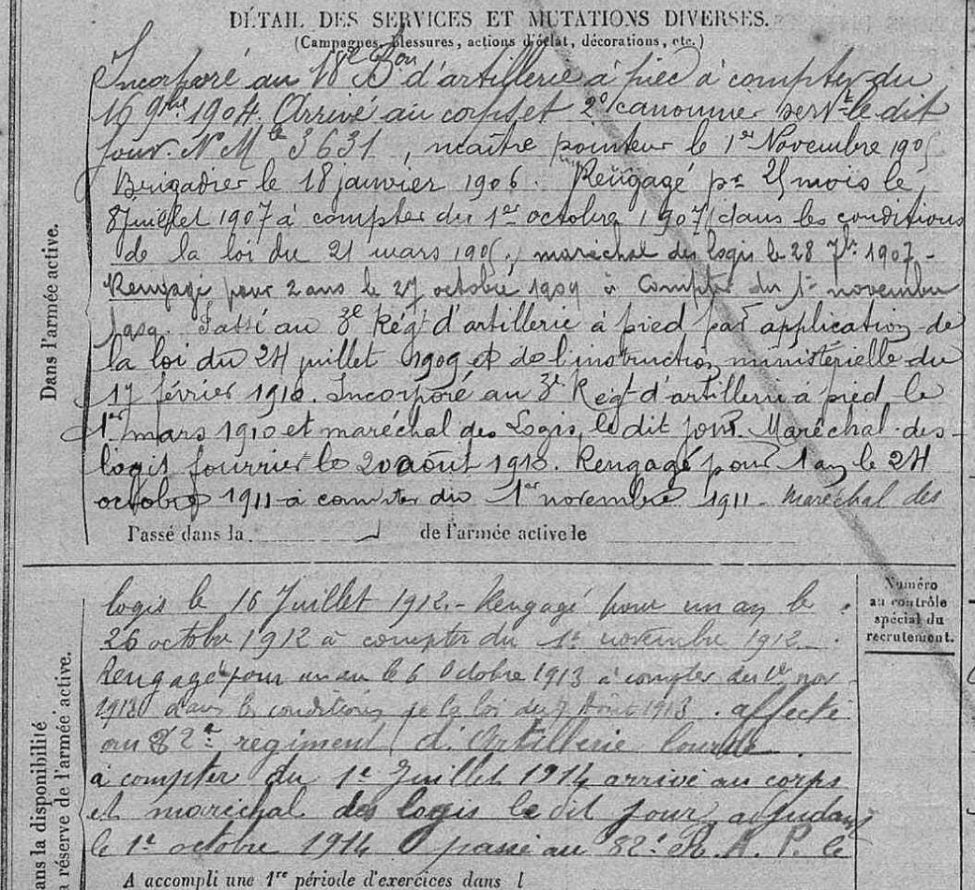 DÉTAIL DES SERVICES ET MUTATIONS DIVERSES.
(Campagnes, blessures, actions d'éclat, décorations, etc.)
Incorporé au 18e Bon d'artillerie à pied à compter du
16 9bre 1904. Arrivé au corps et 2e canonnier servt le dit
jour. N° Mle 3631, maître pointeur le 1er Novembre 1905
Brigadier le 18 janvier 1906. Rengagé pr 25 mois le
8 juillet 1907 à compter du 1er octobre 1907 (dans les conditions
de la loi du 21 mars 1905.) maréchal des logis le 28 7bre 1907-
Rengagé pour 2 ans le 27 octobre 1909 à compter du 1er novembre
1909. Passé au 3e Régt d'artillerie à pied par application de
la loi du 24 juillet 1909 et de l'instruction ministérielle du
17 février 1910. Incorporé au 3e Régt d'artillerie à pied le
1er mars 1910 et maréchal des Logis le dit jour. Maréchal-des-
logis fourrier le 20 août 1910. Rengagé pour 1 an le 24
octobre 1911 à compter du 1er novembre 1911 - Maréchal des
Passé dans la de l'armée active le
Dans l'armée active.
logis le 16 Juillet 1912.- Rengagé pour un an le
26 octobre 1912 à compter du 1er novembre 1912.
Rengagé pour un an le 6 Octobre 1913 à compter du 1er nov
1913 dans les conditions de la loi du 7 Août 1913. affecté
au 82e régiment d'Artillerie lourde
à compter du 1er Juillet 1914 arrivé au corps
et maréchal des logis le dit jour, adjudant
le 1er octobre 1914 passé au 82e R.A.P. le
Numéro
au contrôle
spécial du
recrutement.
ans la disponibilité
a réserve de l'armée active.
A accompli une 1re période d'exercices dans l